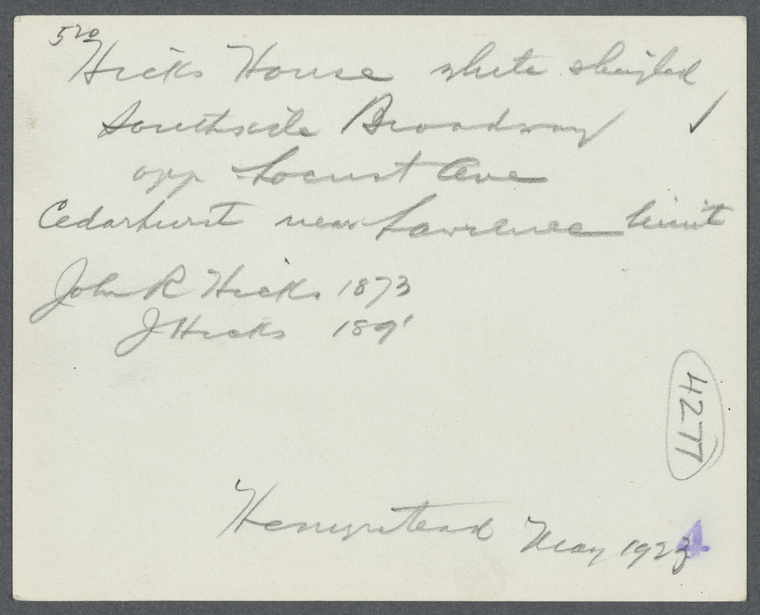 520
Hicks House white shingled
Southside Broadway ✓
opp Locust Ave
Cedarhurst near Lawrence limit
John R Hicks 1873
J Hicks 1891
4277
Hempstead May 192